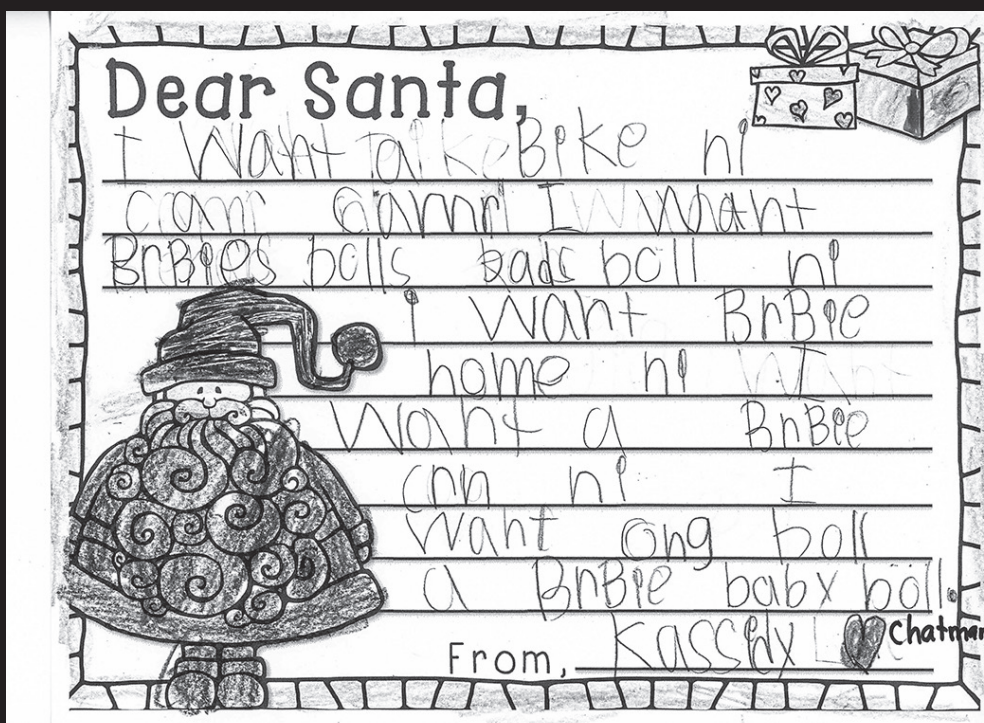 Dear Santa,
I Want Bike ni
I Want
BrBies bolls boll ni
i Want BrBie
home ni I
Want a BrBie
crn ni I
Want ong boll
a BrBie baby boll.
From, Kassidy Chatman